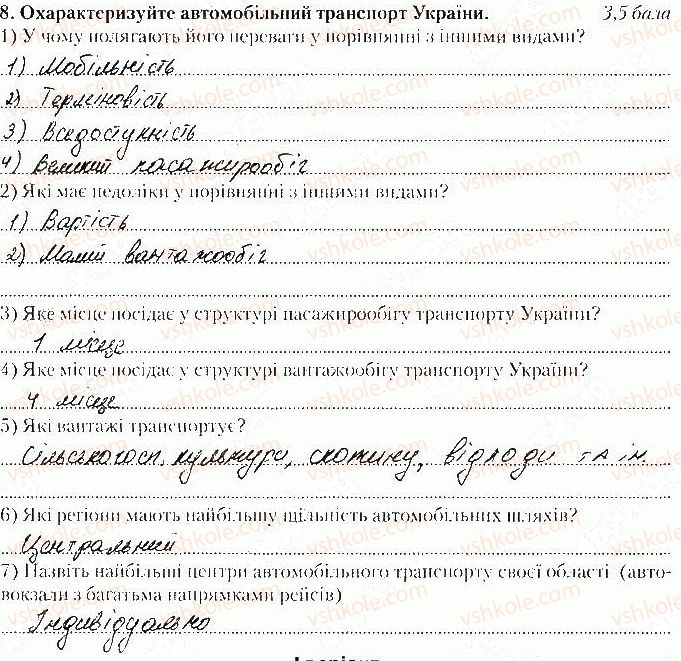 8. Охарактеризуйте автомобільний транспорт України. 3,5 бала
1) У чому полягають його переваги у порівнянні з іншими видами?
1) Мобільність
2) Терміновість
3) Вседоступність
4) Великий пасажирообіг
2) Які має недоліки у порівнянні з іншими видами?
1) Вартість
2) Малий вантажообіг
3) Яке місце посідає у структурі пасажирообігу транспорту України?
1 місце
4) Яке місце посідає у структурі вантажообігу транспорту України?
4 місце
5) Які вантажі транспортує?
Сільськогосп. культура, скотину, відходи та ін.
6) Які регіони мають найбільшу щільність автомобільних шляхів?
Центральний
7) Назвіть найбільші центри автомобільного транспорту своєї області (авто-
вокзали з багатьма напрямками рейсів)
Індивідуально